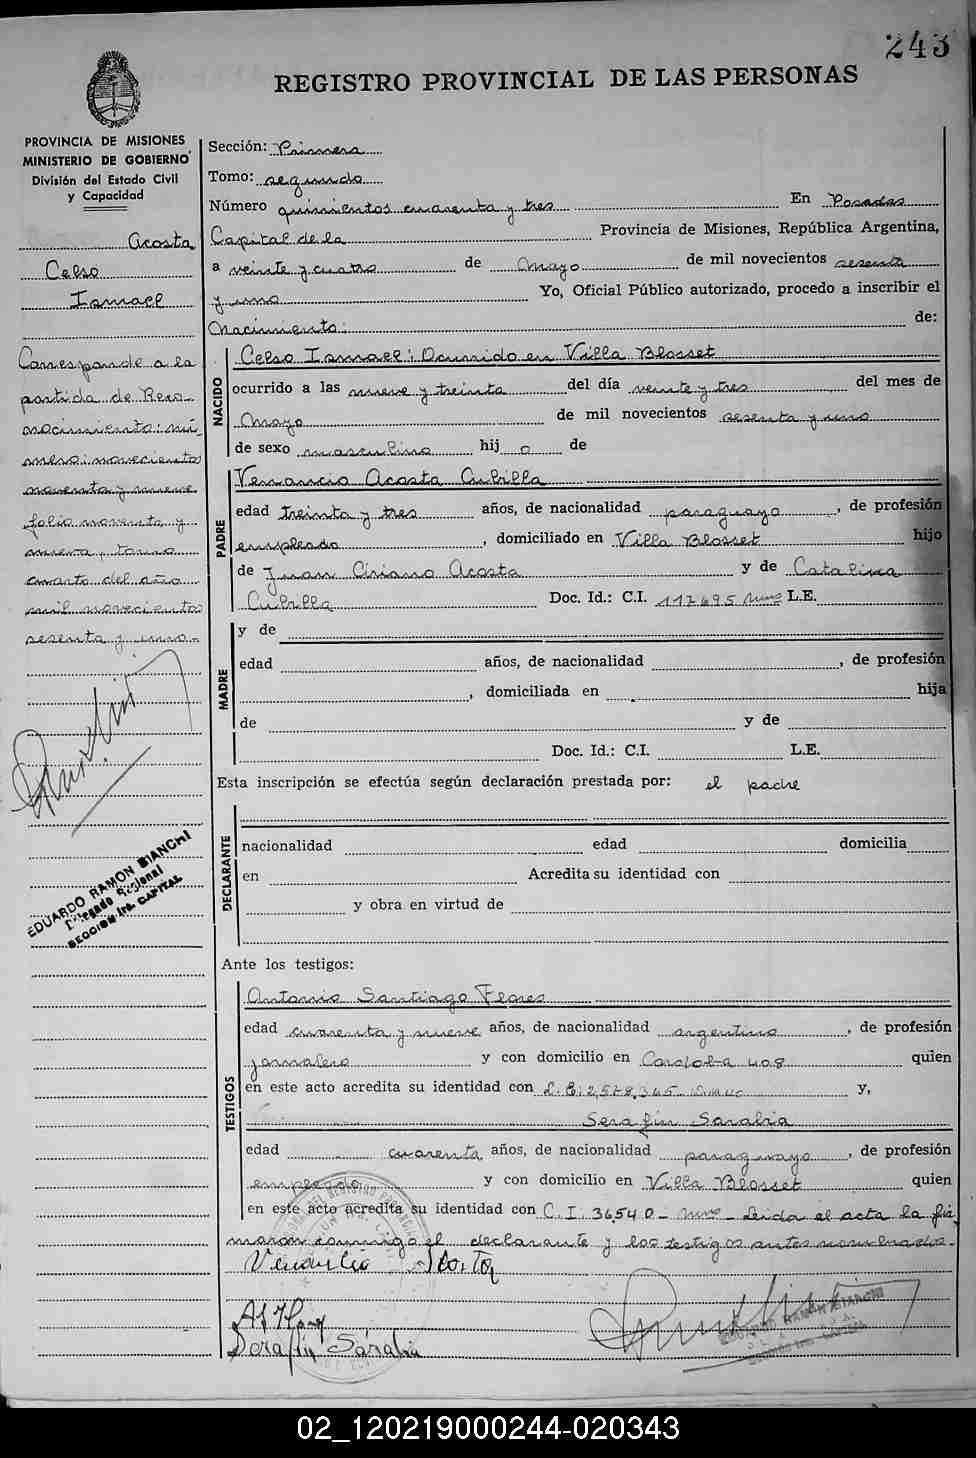 243
REGISTRO PROVINCIAL DE LAS PERSONAS
PROVINCIA DE MISIONES
MINISTERIO DE GOBIERNO
División del Estado Civil
y Capacidad
Acosta
Celso
Ismael
Corresponde a la
partida de Reco-
nocimiento: nú-
mero: novecientos
noventa y nueve
folio noventa y
nueve, tomo
cuarto del año
mil novecientos
sesenta y uno.-
EDUARDO RAMON BIANCHI
Delegado Regional
SECCION 1ra. CAPITAL
Sección: Primera
Tomo: segundo
Número quinientos cuarenta y tres En Posadas
Capital de la Provincia de Misiones, República Argentina,
a veinte y cuatro de Mayo de mil novecientos sesenta
y uno Yo, Oficial Público autorizado, procedo a inscribir el
Nacimiento: de:
NACIDO
Celso Ismael: Ocurrido en Villa Blosset
ocurrido a las nueve y treinta del día veinte y tres del mes de
Mayo de mil novecientos sesenta y uno
de sexo masculino hij o de
PADRE
Venancio Acosta Cubilla
edad treinta y tres años, de nacionalidad paraguayo, de profesión
empleado, domiciliado en Villa Blosset hijo
de Juan Ciriano Acosta y de Catalina
Cubilla Doc. Id.: C.I. 117695 Mnes L.E.
MADRE
y de
edad años, de nacionalidad , de profesión
, domiciliada en hija
de y de
Doc. Id.: C.I. L.E.
Esta inscripción se efectúa según declaración prestada por: el padre
DECLARANTE
nacionalidad edad domicilia
en Acredita su identidad con
y obra en virtud de
Ante los testigos:
TESTIGOS
Antonio Santiago Flores
edad cuarenta y nueve años, de nacionalidad argentino, de profesión
jornalero y con domicilio en Cordoba 408 quien
en este acto acredita su identidad con L.E. 2.578.365 y,
Serafin Sarabia
edad cuarenta años, de nacionalidad paraguayo, de profesión
empleado y con domicilio en Villa Blosset quien
en este acto acredita su identidad con C.I. 36540 - Mnes - Leida el acta la fir
maron conmigo el declarante y los testigos antes nombrados.
Venancio Acosta
Serafin Sarabia
EDUARDO RAMON BIANCHI
02_120219000244-020343